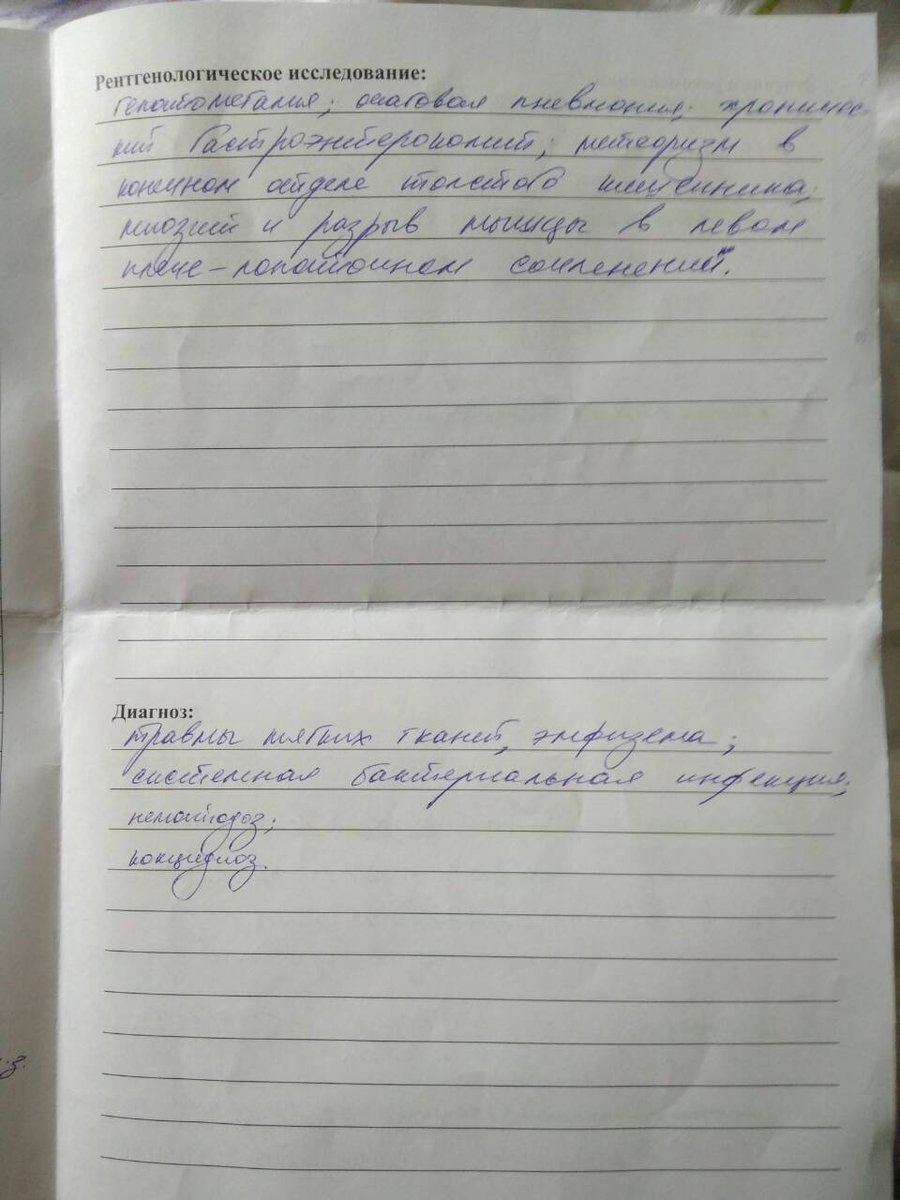 Рентгенологическое исследование:
гепатомегалия; очаговая пневмония; хроничес-
кий гастроэнтероколит; метеоризм в
конечном отделе толстого кишечника;
миозит и разрыв мышцы в левом
плече-лопаточном сочленении.
Диагноз:
травмы мягких тканей, эмфизема;
системная бактериальная инфекция;
нематодоз;
кокцидиоз.